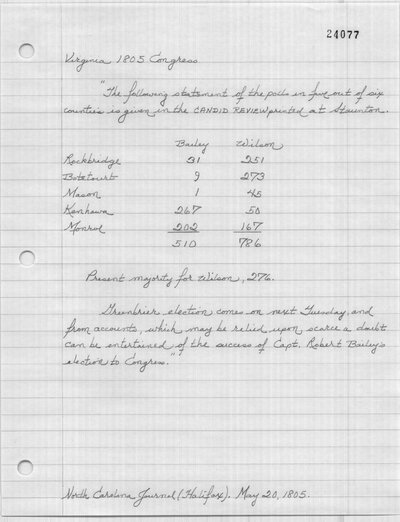 24077
Virginia 1805 Congress
"The following statement of the polls in five out of six
counties is given in the CANDID REVIEW printed at Staunton.
Bailey Wilson
Rockbridge 31 251
Botetourt 9 273
Mason 1 45
Kanhawa 267 50
Monroe 202 167
510 786
Present majority for Wilson, 276.
Greenbrier election comes on next Tuesday and
from accounts, which may be relied upon scarce a doubt
can be entertained of the success of Capt. Robert Bailey's
election to Congress."
North Carolina Journal (Halifax). May 20, 1805.